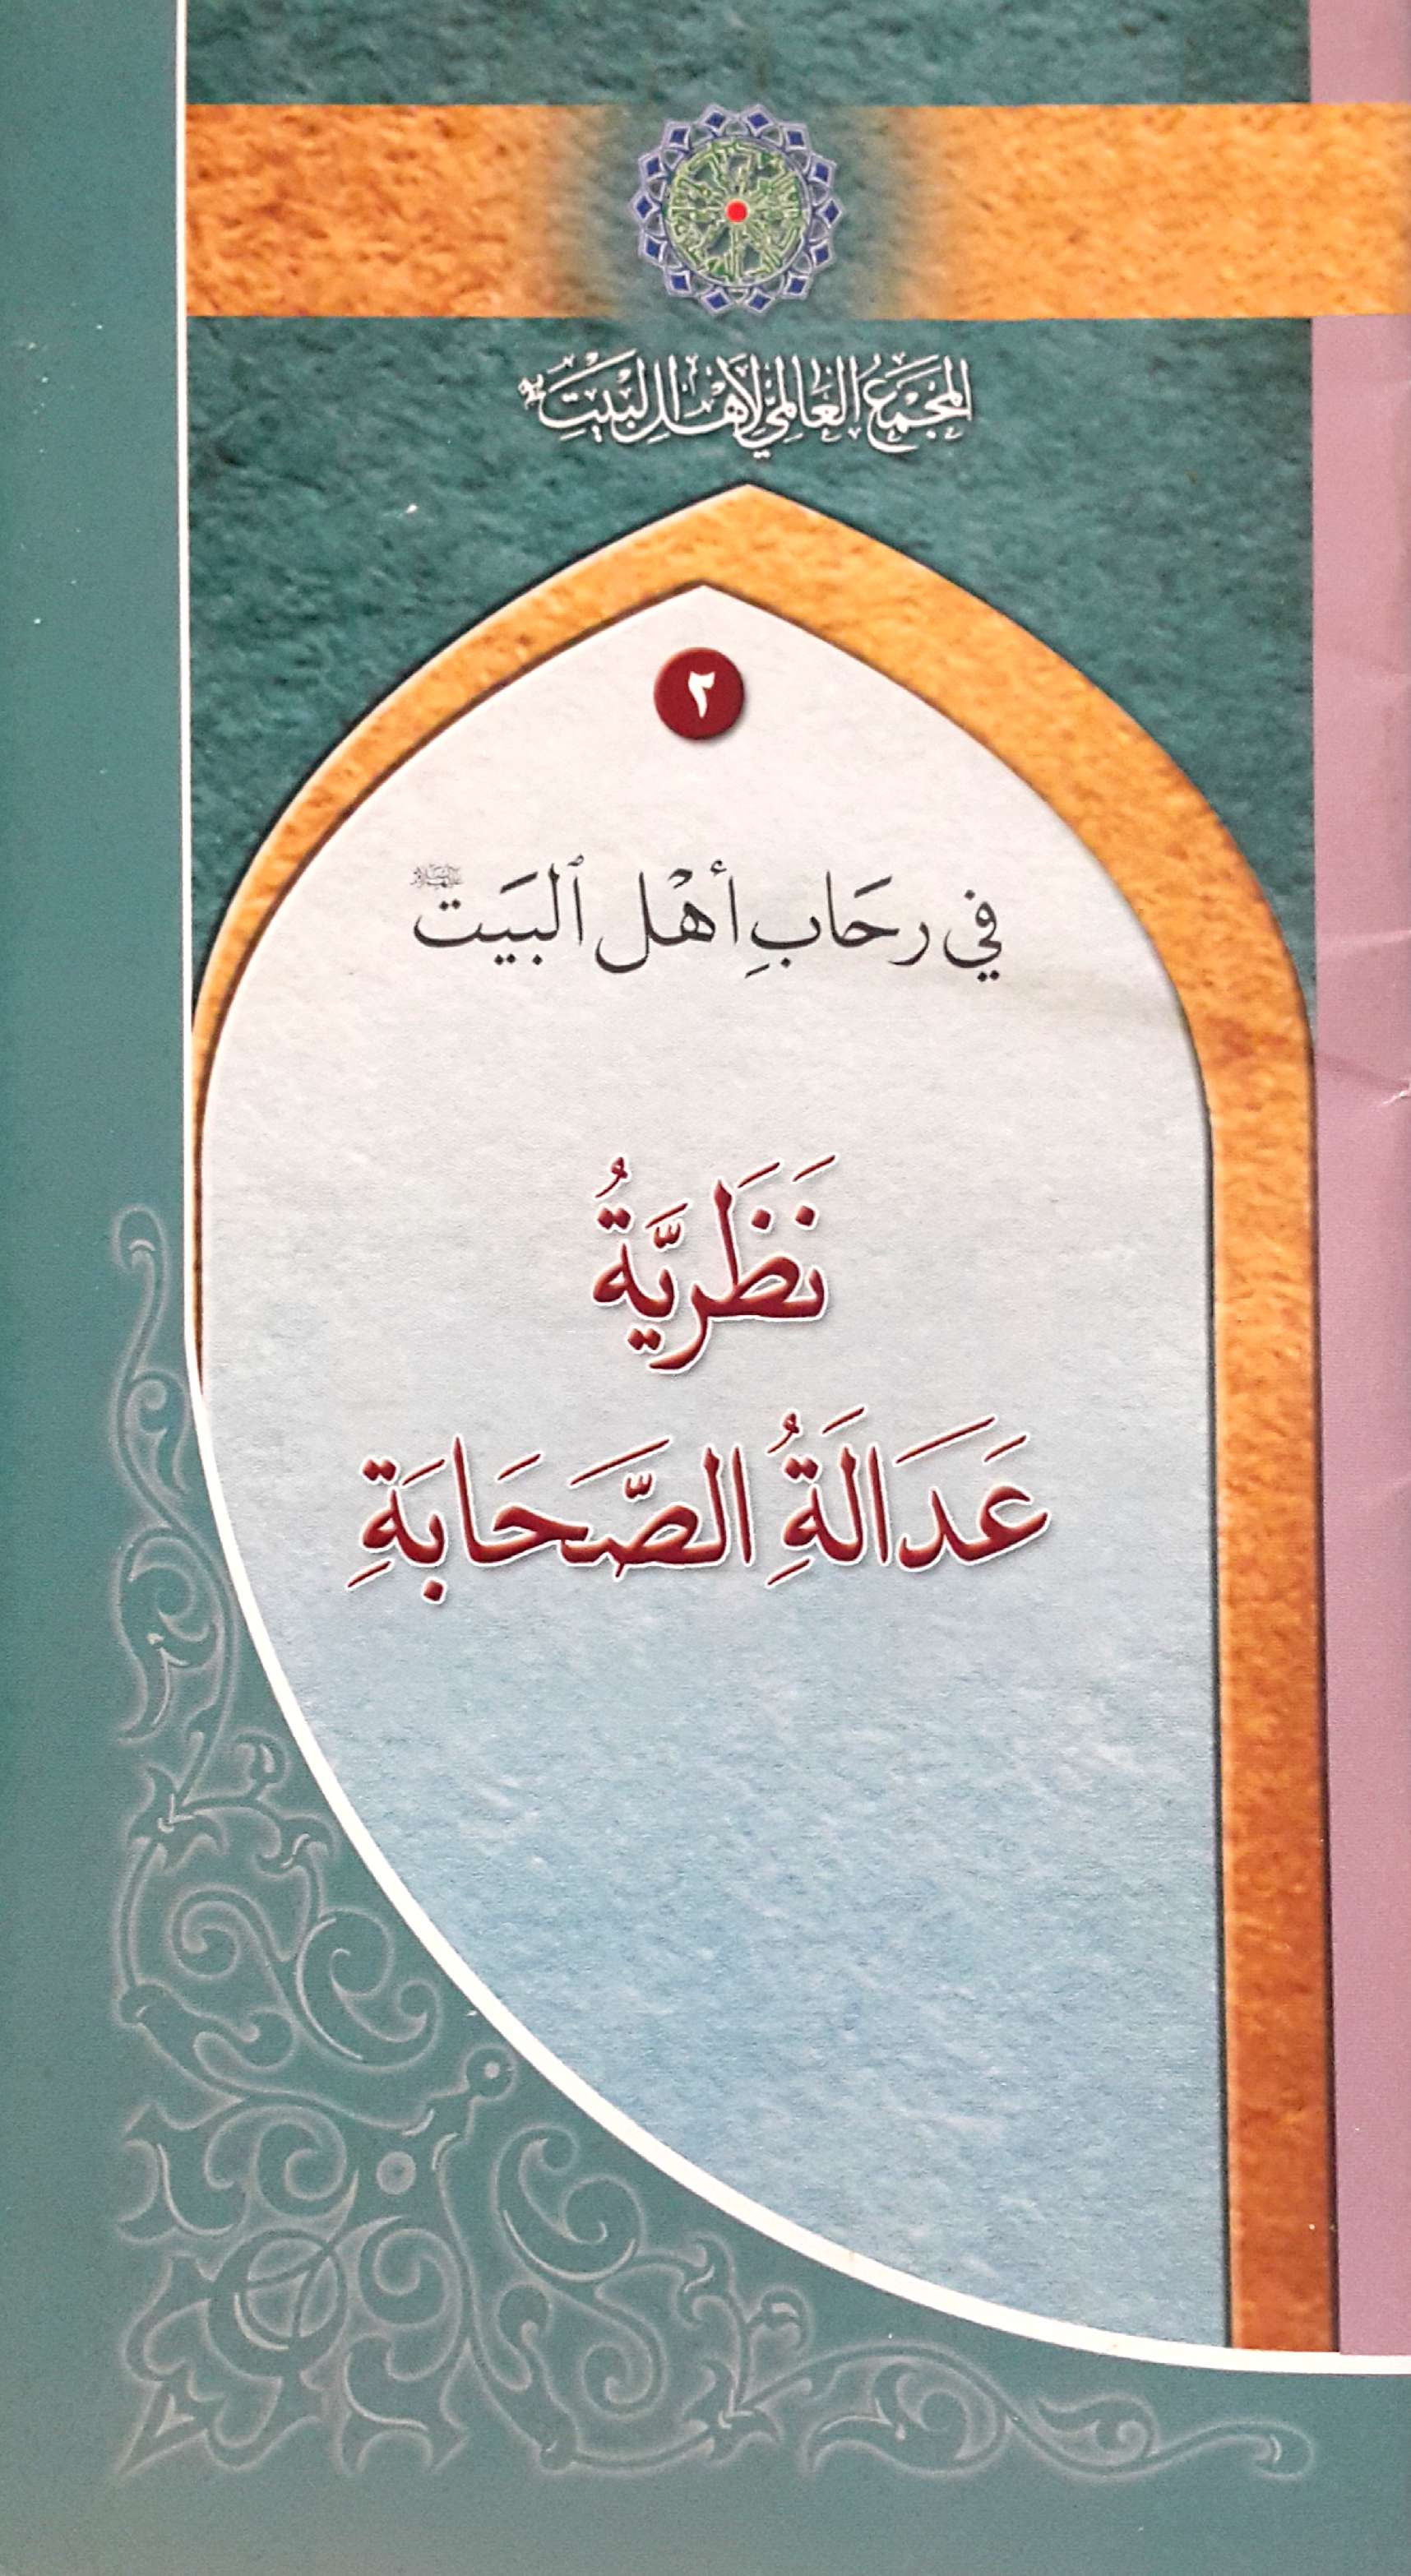 المجمع العالمي لأهل البيت
٢
في رحَابِ أهْل ٱلبَيت
نَظَريَّةُ
عَدَالَةُ الصَّحَابَةِ